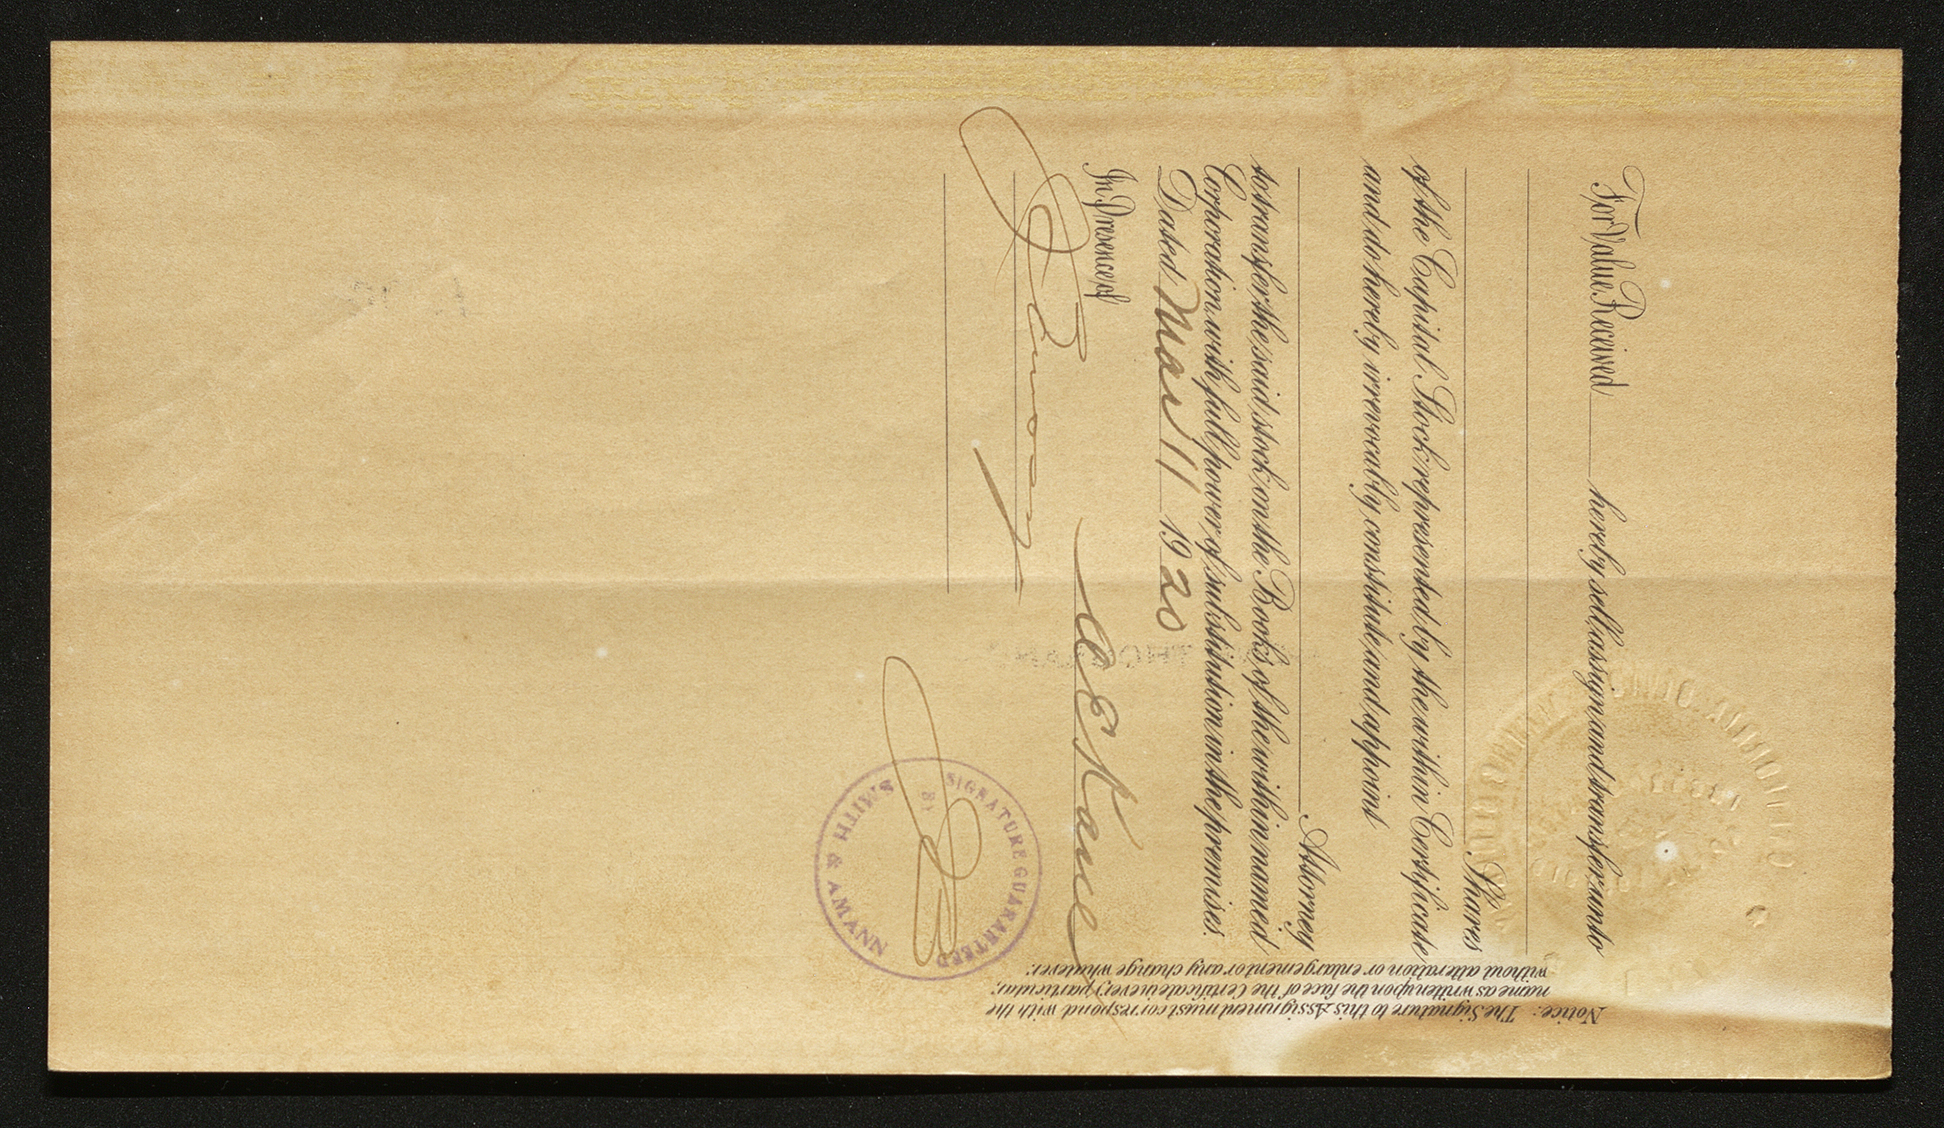 For Value Received hereby sell, assign and transfer unto
Shares
of the Capital Stock represented by the within Certificate
and do hereby irrevocably constitute and appoint
Attorney
to transfer the said stock on the Books of the within named
Corporation with full power of substitution in the premises.
Dated Mar 11 1920
In Presence of
SIGNATURE GUARANTEED
BY
SMITH & AMANN
Notice: The Signature to this Assignment must correspond with the
name as written upon the face of the Certificate in every particular,
without alteration or enlargement or any change whatever.